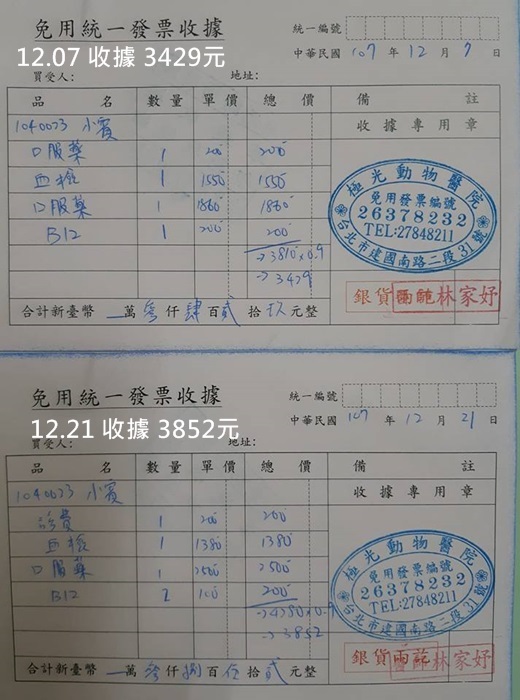 免用統一發票收據
統一編號
12.07 收據 3429元
中華民國 107 年 12 月 7 日
買受人: 地址:
品 名 數量 單 價 總 價 備 註
1040023 小賓 收據專用章
口服藥 1 200 200
血檢 1 1550 1550
口服藥 1 1860 1860
B12 1 200 200
→3810×0.9
→3429
極光動物醫院
免用發票編號
26378232
TEL:27848211
台北市建國南路二段31號
銀貨兩訖 林家妤
合計新臺幣 萬 參 仟 肆 百 貳 拾 玖 元整
免用統一發票收據
統一編號
12.21 收據 3852元
中華民國 107 年 12 月 21 日
買受人: 地址:
品 名 數量 單 價 總 價 備 註
1040023 小賓 收據專用章
診費 1 200 200
血檢 1 1380 1380
口服藥 1 2500 2500
B12 2 100 200
→4280×0.9
→3852
極光動物醫院
免用發票編號
26378232
TEL:27848211
台北市建國南路二段31號
銀貨兩訖 林家妤
合計新臺幣 萬 參 仟 捌 百 伍 拾 貳 元整